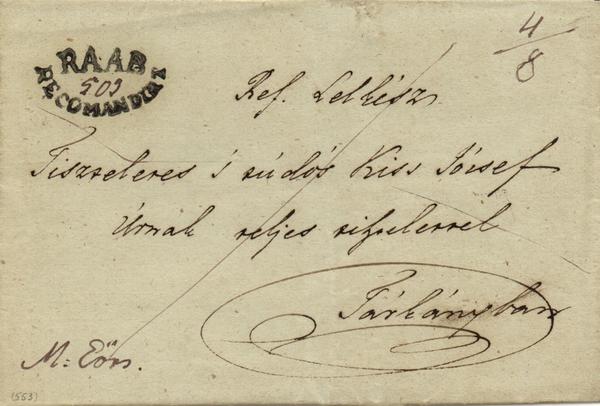 4/8
RAAB
503
RECOMANDIRT
Ref. Lelkész
Tiszteletes s tudós Kiss József
Úrnak teljes tisztelettel
Tárkányban
M: Eörs.
(553)